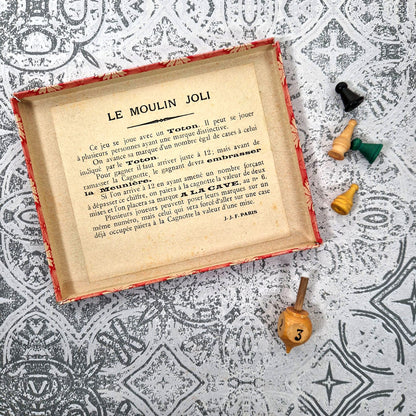 LE MOULIN JOLI
Ce jeu se joue avec un Toton. Il peut se jouer
à plusieurs personnes ayant une marque distinctive.
On avance sa marque d'un nombre égal de cases à celui
indiqué par le Toton.
Pour gagner il faut arriver juste à 12; mais avant de
ramasser la Cagnotte, le gagnant devra embrasser
la Meunière.
Si l'on arrive à 12 en ayant amené un nombre forçant
à dépasser ce chiffre, on paiera à la cagnotte la valeur de deux
mises et l'on placera sa marque A LA CAVE, au nº 6.
Plusieurs joueurs peuvent poser leurs marques sur un
même numéro, mais celui qui sera forcé d'aller sur une case
déjà occupée paiera à la Cagnotte la valeur d'une mise.
J.-J.-F. PARIS
3